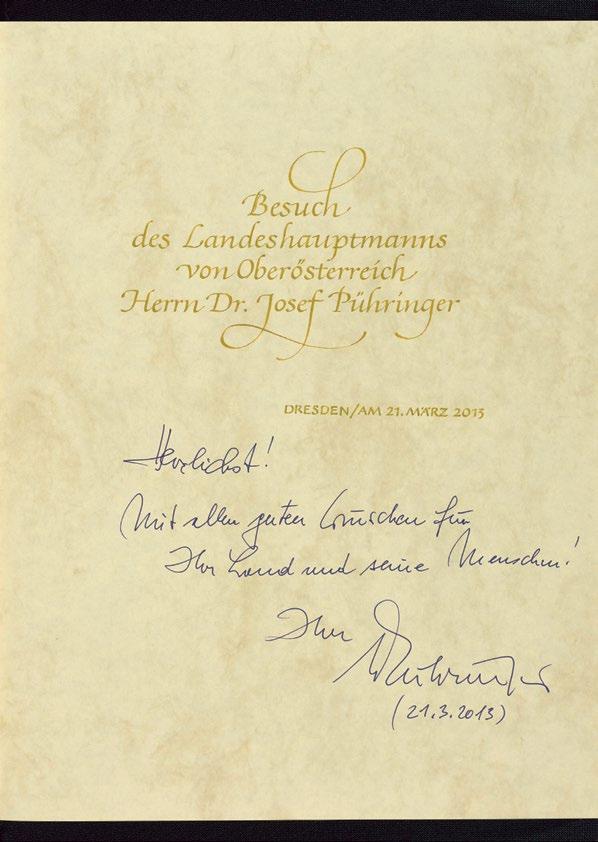 Besuch
des Landeshauptmanns
von Oberősterreich
Herrn Dr. Josef Pühringer
DRESDEN/AM 21. MÄRZ 2013
Herzlichst!
Mit allen guten Wünschen für
Ihr Land und seine Menschen!
Ihr
Pühringer
(21.3.2013)